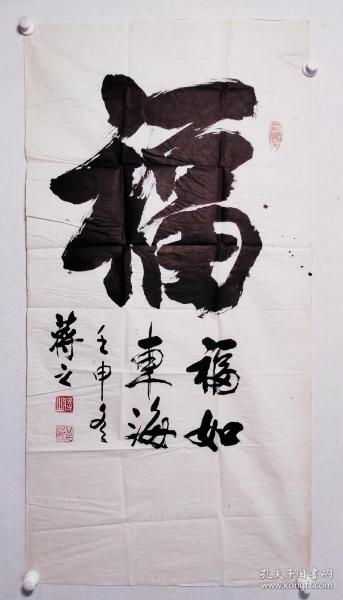 福
福如
東海
壬申冬
蔣之
孔夫子旧书网
www.kongfz.com